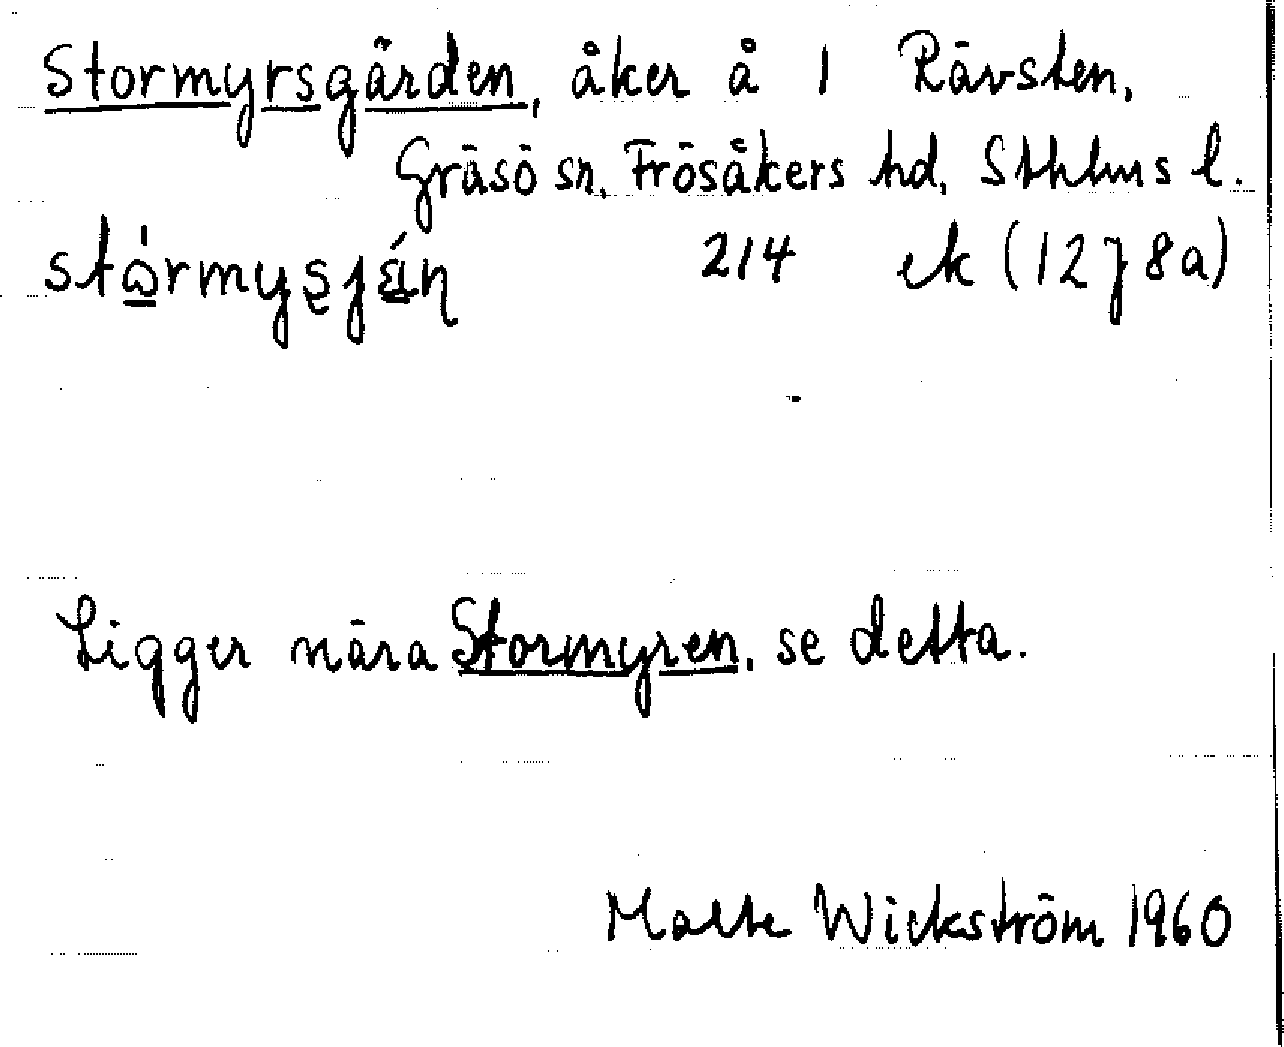 Stormyrsgården, åker å 1 Rävsten,
Gräsö sn, Frösåkers hd, Sthlms l.
214 ek (12 J 8a)
Ligger nära Stormyren, se detta.
Malte Wickström 1960